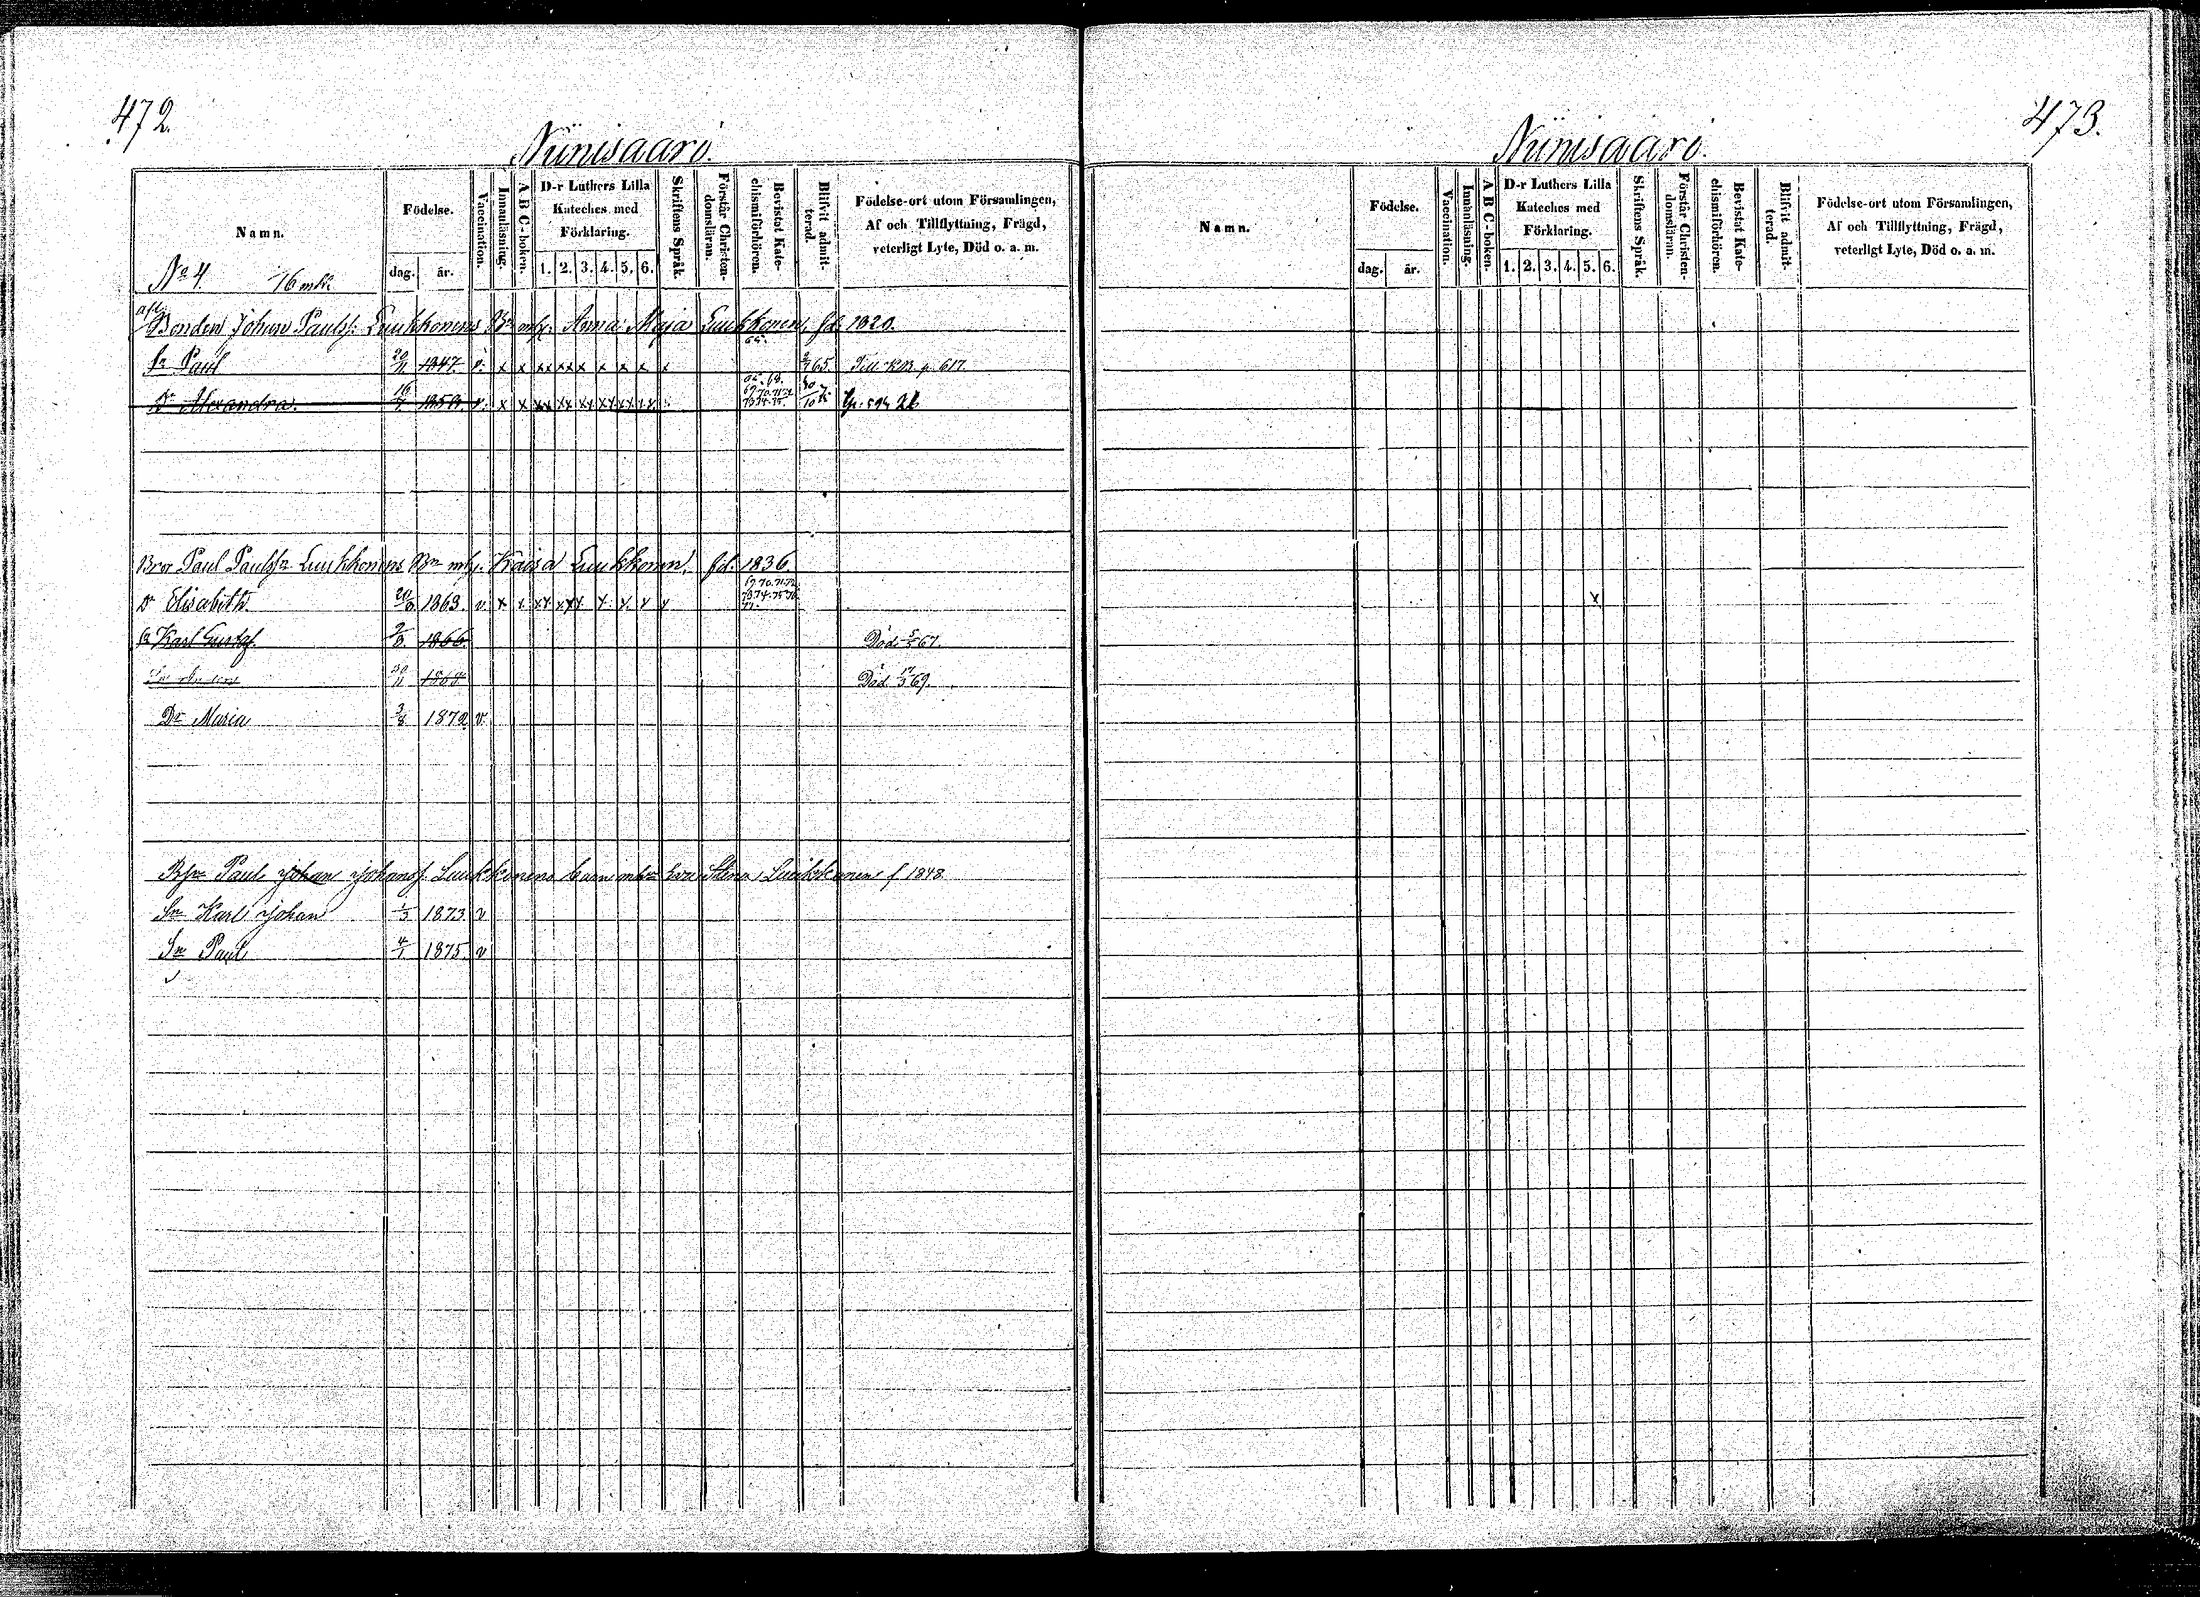 472.
Niinisaari.
Namn.
Födelse.
dag. år.
Vaccination.
Innanläsning.
A B C-boken.
D-r Luthers Lilla
Kateches med
Förklaring.
1. 2. 3. 4. 5. 6.
Skriftens Språk.
Förstår Christen-
domsläran.
Bevistat Kate-
chismiförhören.
Blifvit admit-
terad.
Födelse-ort utom Församlingen,
Af och Tillflyttning, Frägd,
veterligt Lyte, Död o. a. m.
No 4. 16
Bonden Johan Paulss: Luukkonens Bn Anna Maja Luukkonen, fd: 1820.
65.
Sn Paul 20/11 1847. v. x x xx xxx x x x x 65. Till KB p. 617.
Dr Alexandra. 16 1859. v. x x xx xx xx xx xx xx
Bror Paul Paulssn Luukkonens Bn Kaisa Luukkonen, fd: 1836.
69 70. 71. 72.
Dr Elisabeth 20/8 1863. v. x x xx xxx x x x x 73 74. 75 76
77.
Sn Karl Gustaf. 2/8 1866. Död 67.
30/11 1868 Död 69.
Dr Maria 3/8 1872 v.
Paul Johan Johanss. Luukkonens barn Stina Luukkonen f 1848.
Sn Karl Johan 1/3 1873 v
Sn Paul 4/1 1875. v
473.
Niinisaari.
Namn.
Födelse.
dag. år.
Vaccination.
Innanläsning.
A B C-boken.
D-r Luthers Lilla
Kateches med
Förklaring.
1. 2. 3. 4. 5. 6.
Skriftens Språk.
Förstår Christen-
domsläran.
Bevistat Kate-
chismiförhören.
Blifvit admit-
terad.
Födelse-ort utom Församlingen,
Af och Tillflyttning, Frägd,
veterligt Lyte, Död o. a. m.
x